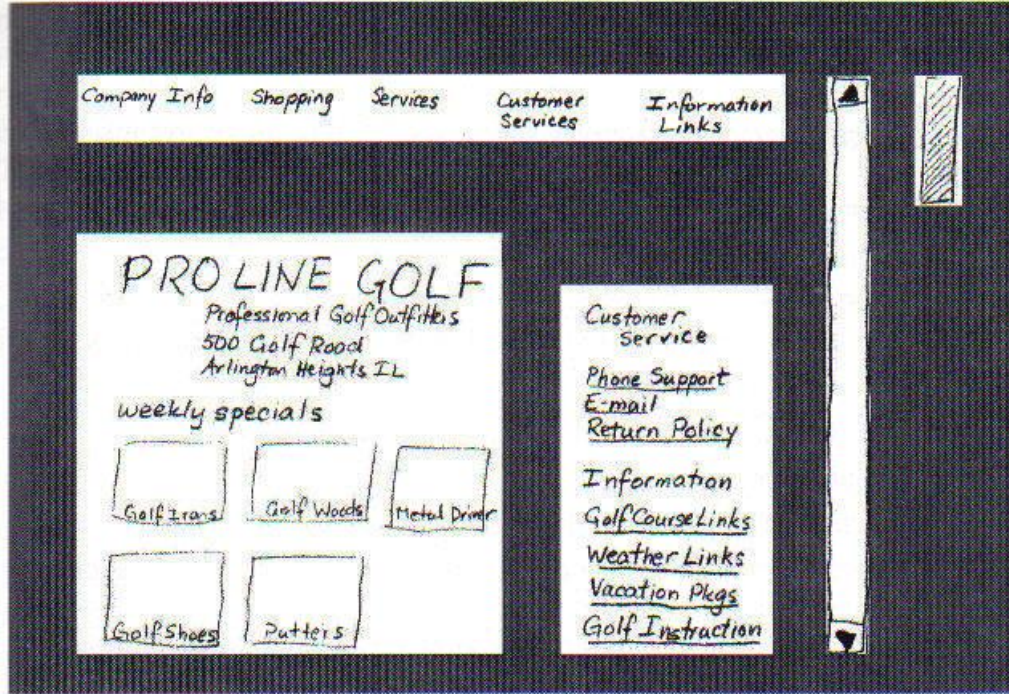 Company Info
Shopping
Services
Customer
Services
Information
Links
PRO LINE GOLF
Professional Golf Outfitters
500 Golf Road
Arlington Heights IL
weekly specials
Golf Irons
Golf Woods
Metal Driver
Golf Shoes
Putters
Customer
Service
Phone Support
E-mail
Return Policy
Information
Golf Course Links
Weather Links
Vacation Pkgs
Golf Instruction